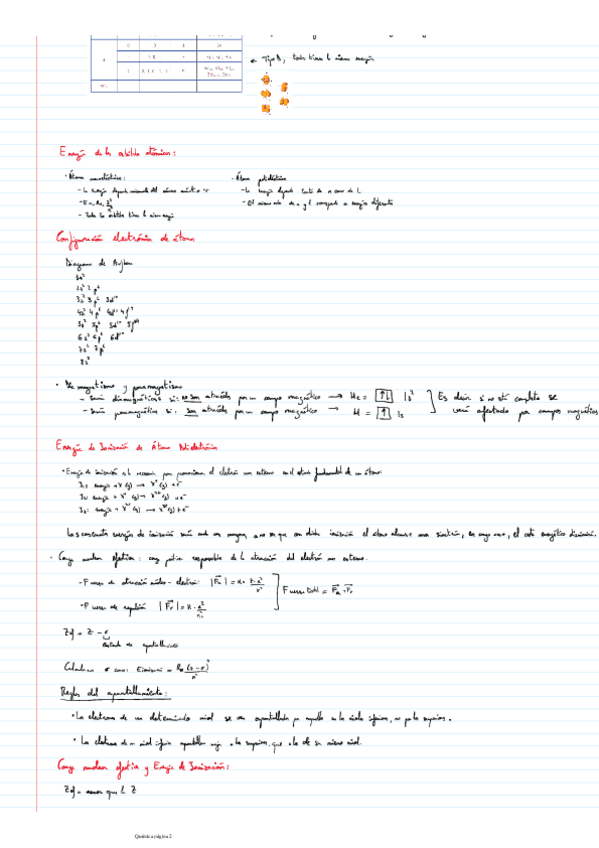 Tipo D, todos tienen la misma energía
Energía de los orbitales atómicos:
• Átomo monoelectrónico:
- La energía depende únicamente del número cuántico "n"
- Todos los orbitales tienen la misma energía
• Átomo polielectrónico
- La energía depende tanto de n como de l.
- El mismo valor de n y l corresponde a energías diferentes
Configuración electrónica de átomos
Diagrama de Aufbau
1s²
2s² 2p⁶
3s² 3p⁶ 3d¹⁰
4s² 4p⁶ 4d¹⁰ 4f¹⁴
5s² 5p⁶ 5d¹⁰ 5f¹⁴
6s² 6p⁶ 6d¹⁰
7s² 7p⁶
8s²
• Diamagnetismo y paramagnetismo
- Serán diamagnéticas si: no son atraídas por un campo magnético → He = [↑↓] 1s²
- Serán paramagnéticas si: son atraídas por un campo magnético → H = [↑] 1s
Es decir si no está completo se verá afectado por campos magnéticos
Energía de Ionización de Átomos Polielectrónicos
• Energía de ionización es la necesaria para proporcionar al electrón más externo en el estado fundamental de un átomo.
I₁: energía + X (g) → X⁺ (g) + e⁻
I₂: energía + X⁺ (g) → X²⁺ (g) + e⁻
I₃: energía + X²⁺ (g) → X³⁺ (g) + e⁻
Las constantes energías de ionización serán cada vez mayores, a no ser que con dicha ionización el átomo alcance una simetría, en cuyo caso, el coste energético disminuirá.
• Carga nuclear efectiva: carga positiva responsable de la atracción del electrón más externo.
- Fuerza de atracción núcleo - electrón: |Fₐ| = K · Z·e²/r²
- Fuerza de repulsión |Fᵣ| = K · e²/r²
Fuerza total = Fₐ - Fᵣ
Zef = Z - σ
constante de apantallamiento
Calculamos σ como: E ionización = R_H (Z-σ)²/n²
Reglas del apantallamiento:
• Los electrones de un determinado nivel se ven apantallados por aquellos en los niveles inferiores, no por los superiores.
• Los electrones de un nivel inferior apantallan mejor a los superiores, que a los de su mismo nivel.
Carga nuclear efectiva y Energía de Ionización:
Zef = menor que la Z
Química página 2